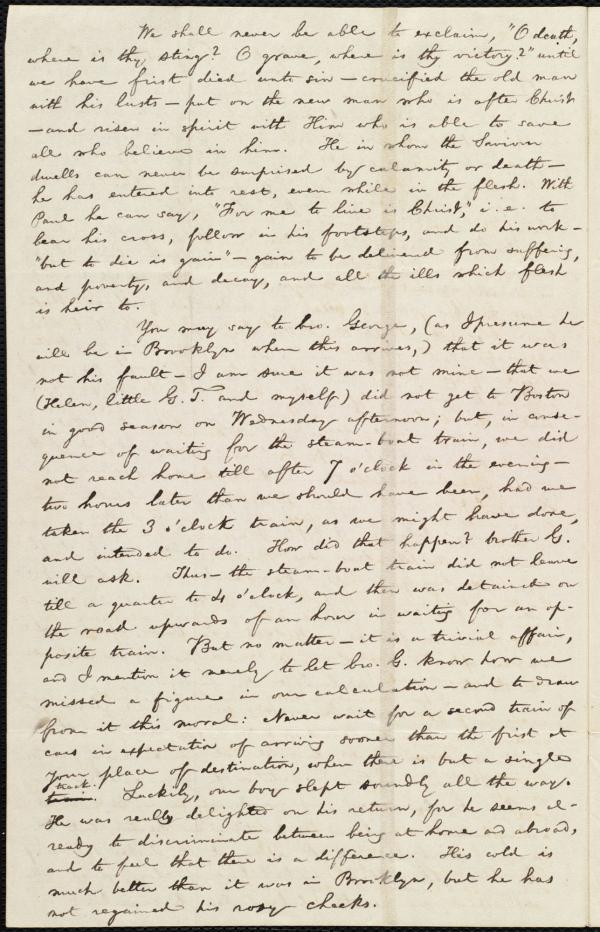 We shall never be able to exclaim, "O death,
where is thy sting? O grave, where is thy victory?" until
we have first died unto sin — crucified the old man
with his lusts — put on the new man who is after Christ
— and risen in spirit with Him who is able to save
all who believe in him. He in whom the Saviour
dwells can never be surprised by calamity or death —
he has entered into rest, even while in the flesh. With
Paul he can say, "For me to live is Christ," i. e. to
bear his cross, follow in his footsteps, and do his work —
"but to die is gain" — gain to be delivered from suffering,
and poverty, and decay, and all the ills which flesh
is heir to.
You may say to bro. George, (as I presume he
will be in Brooklyn when this arrives,) that it was
not his fault — I am sure it was not mine — that we
(Helen, little G. T. and myself) did not get to Boston
in good season on Wednesday afternoon; but, in conse-
quence of waiting for the steam-boat train, we did
not reach home till after 7 o'clock in the evening —
two hours later than we should have been, had we
taken the 3 o'clock train, as we might have done,
and intended to do. How did that happen? brother G.
will ask. Thus — the steam-boat train did not leave
till a quarter to 4 o'clock, and then was detained on
the road upwards of an hour in waiting for an op-
posite train. But no matter — it is a trivial affair,
and I mention it merely to let bro. G. know how we
missed a figure in our calculation — and to draw
from it this moral: Never wait for a second train of
cars in expectation of arriving sooner than the first at
your place of destination, when there is but a single
track. Luckily, our boy slept soundly all the way.
He was really delighted on his return, for he seems al-
ready to discriminate between being at home and abroad,
and to feel that there is a difference. His cold is
much better than it was in Brooklyn, but he has
not regained his rosy cheeks.